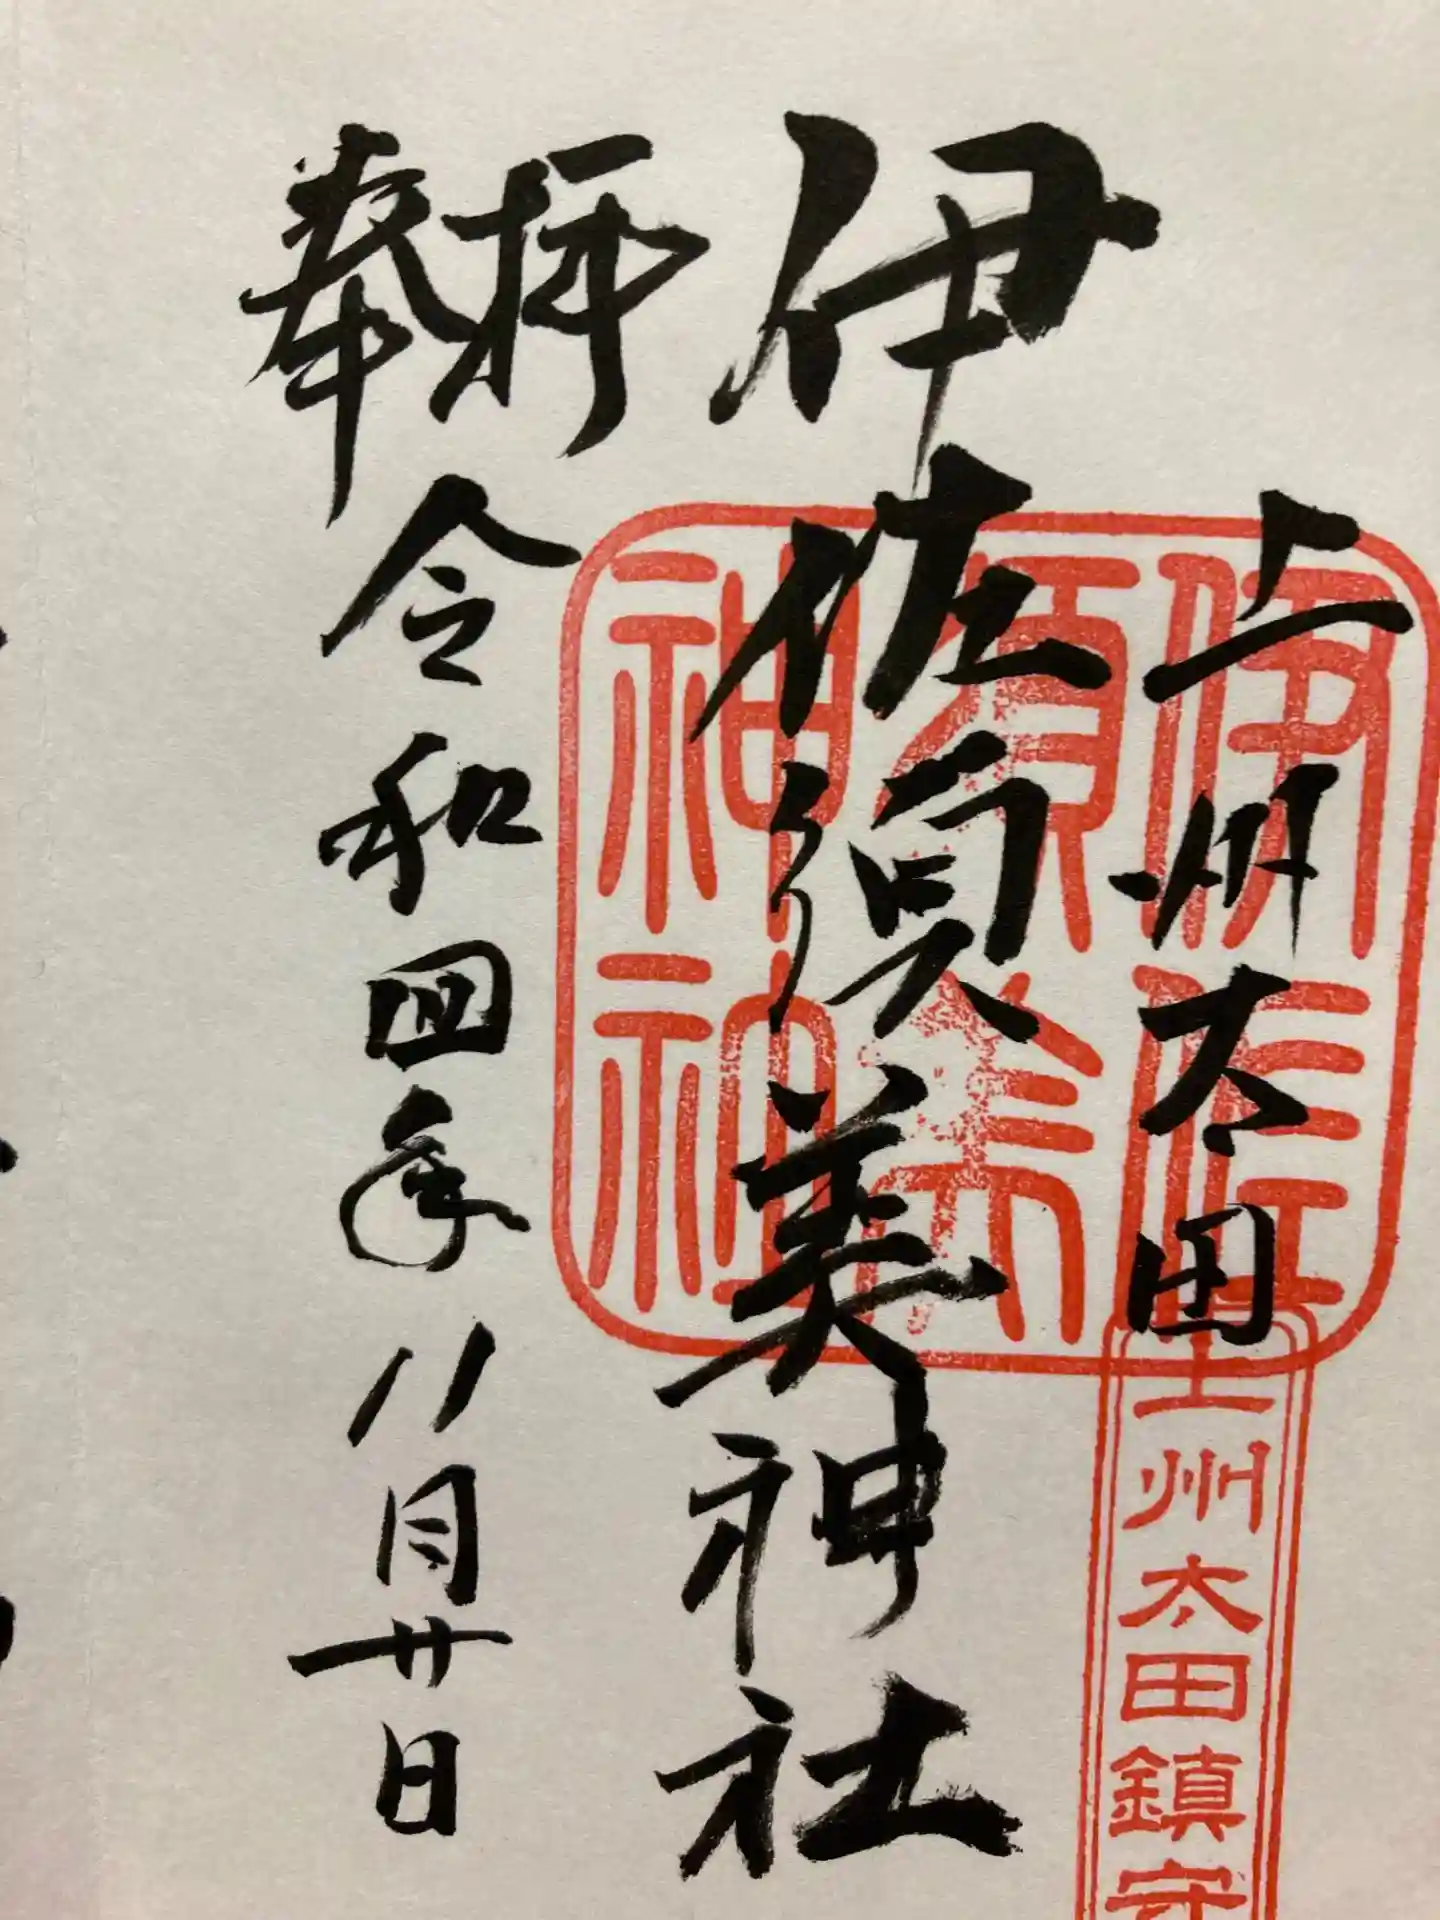 上州太田
伊佐須美神社
奉拝
令和四年八月廿日
伊佐
須美
神社
上州太田鎮守